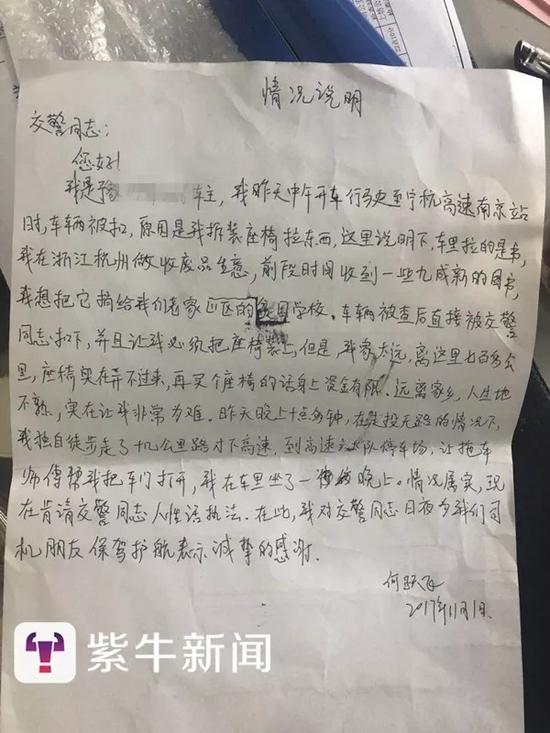 情况说明
交警同志:
您好!
我是豫 车主，我昨天中午开车行驶至宁杭高速南京站
时，车辆被扣，原因是我拆装座椅拉东西，这里说明下，车里拉的是书，
我在浙江杭州做收废品生意，前段时间收到一些九成新的图书，
我想把它捐给我们老家山区的 学校。车辆被查后直接被交警
同志扣下，并且让我必须把座椅装上，但是，我家太远，离这里七百多公
里，座椅实在弄不过来，再买个座椅的话身上资金有限。远离家乡，人生地
不熟，实在让我非常为难。昨天晚上十点多钟，在走投无路的情况下，
我独自徒步走了十几公里路才下高速，到高速 队停车场，让拖车
师傅帮我把车门打开，我在车里坐了一 晚上。情况属实，现
在肯请交警同志人性话执法。在此，我对交警同志日夜为我们司
机朋友保驾护航表示诚挚的感谢.
何跃飞
2017年11月1日.
紫牛新闻